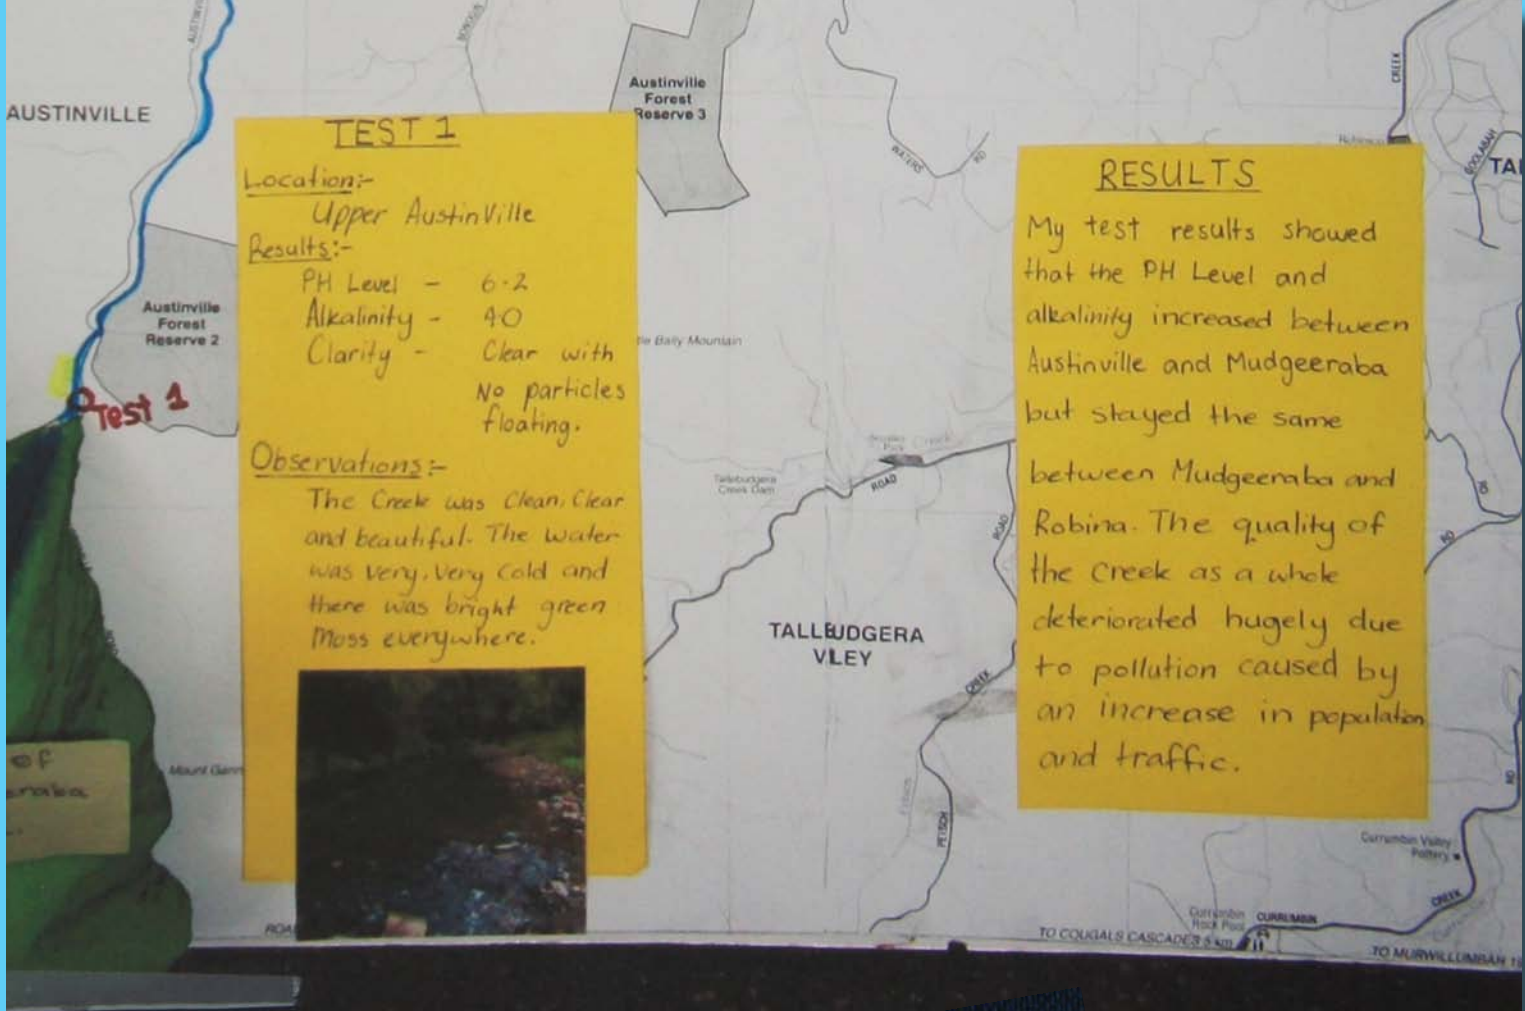 AUSTINVILLE
Austinville
Forest
Reserve 3
WATERS
RD
CREEK
COOLABAH
TA
TEST 1
Location:-
Upper AustinVille
Results:-
PH Level - 6.2
Alkalinity - 40
Clarity - Clear with
No particles
floating.
Observations:-
The Creek was Clean, Clear
and beautiful. The water
was very, very cold and
there was bright green
Moss everywhere.
Austinville
Forest
Reserve 2
Test 1
Bally Mountain
Tallebudgera
Creek Dam
ROAD
ROAD
TALLEBUDGERA
VLEY
CREEK
PETSCH
RESULTS
My test results showed
that the PH Level and
alkalinity increased between
Austinville and Mudgeeraba
but stayed the same
between Mudgeeraba and
Robina. The quality of
the creek as a whole
deteriorated hugely due
to pollution caused by
an increase in population
and traffic.
RD
RD
RD
of
Mount
Currumbin Valley
Pottery
Currumbin
Rock Pool
CURRUMBIN
CREEK
TO COUGALS CASCADES 5 km
TO MURWILLUMBAH